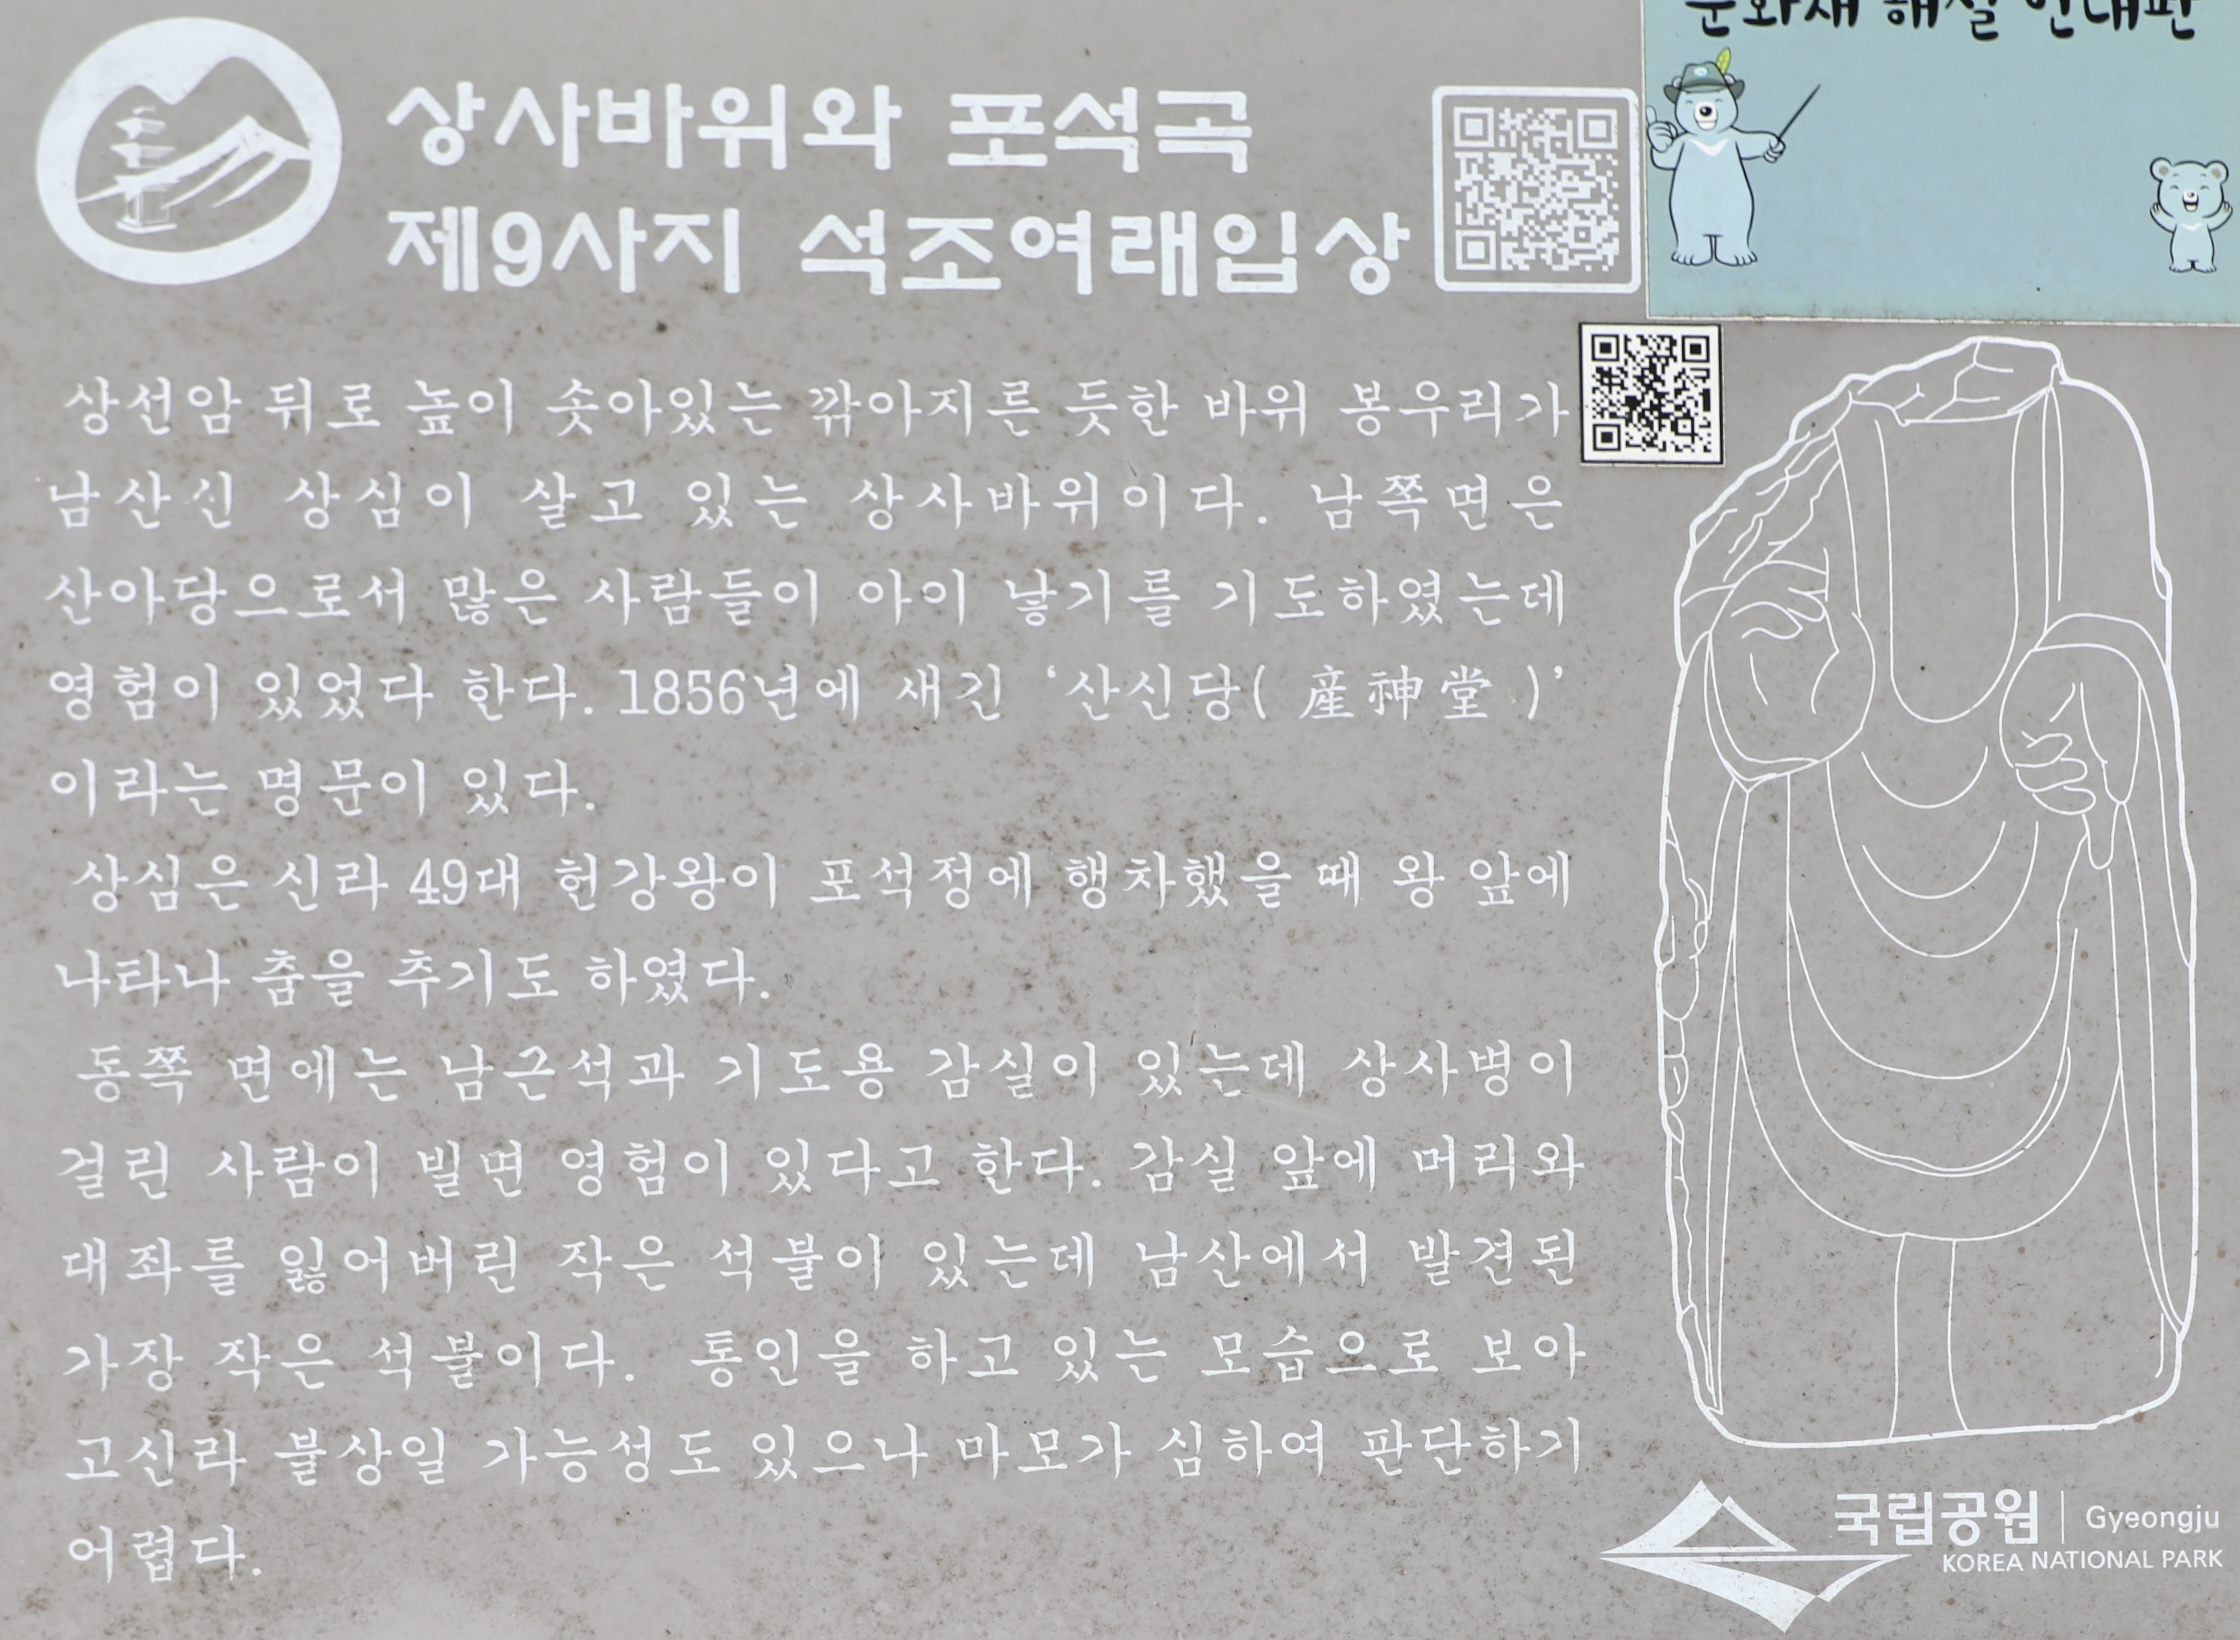 문화재 해설 안내판
상사바위와 포석곡
제9사지 석조여래입상
상선암 뒤로 높이 솟아있는 깎아지른 듯한 바위 봉우리가
남산신 상심이 살고 있는 상사바위이다. 남쪽면은
산아당으로서 많은 사람들이 아이 낳기를 기도하였는데
영험이 있었다 한다. 1856년에 새긴 ‘산신당( 産神堂 )’
이라는 명문이 있다.
상심은 신라 49대 헌강왕이 포석정에 행차했을 때 왕 앞에
나타나 춤을 추기도 하였다.
동쪽 면에는 남근석과 기도용 감실이 있는데 상사병이
걸린 사람이 빌면 영험이 있다고 한다. 감실 앞에 머리와
대좌를 잃어버린 작은 석불이 있는데 남산에서 발견된
가장 작은 석불이다. 통인을 하고 있는 모습으로 보아
고신라 불상일 가능성도 있으나 마모가 심하여 판단하기
어렵다.
국립공원 | Gyeongju
KOREA NATIONAL PARK